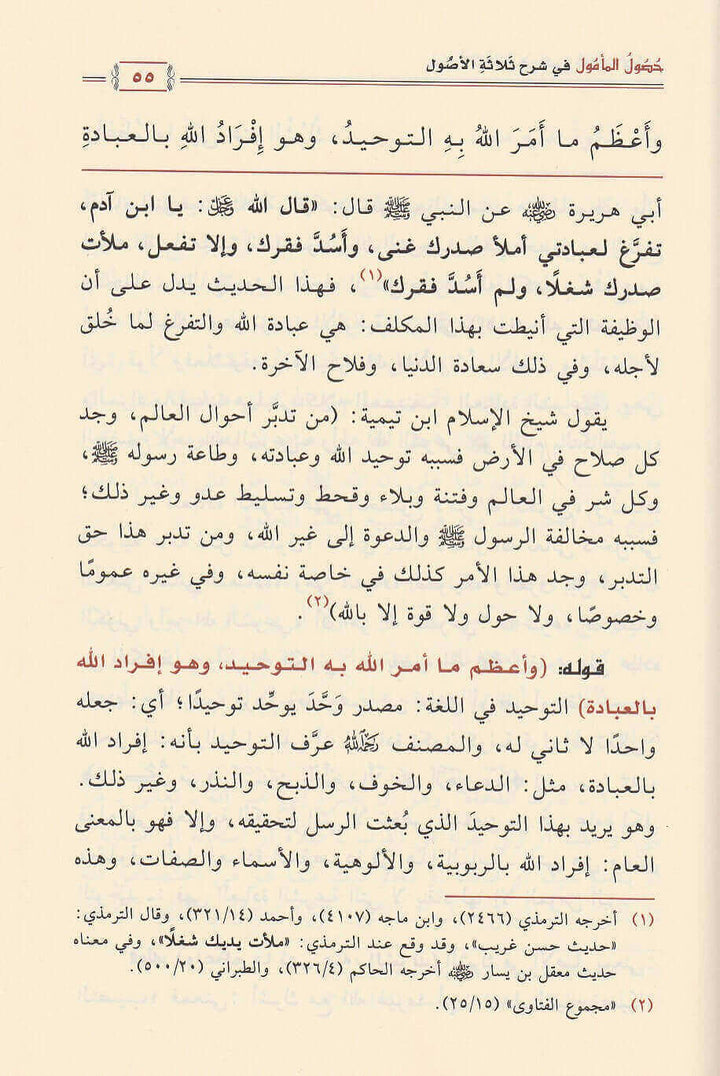 حُصُولُ المأمُول في شرح ثَلاثَةِ الأصُول
٥٥
وأَعْظَمُ ما أَمَرَ اللهُ بِهِ التوحيدُ، وهو إِفْرَادُ اللهِ بالعبادةِ
أبي هريرة رضي الله عنه عن النبي ﷺ قال: «قال الله عز وجل: يا ابن آدم،
تفرَّغ لعبادتي أملأ صدرك غنى، وأَسُدَّ فقرك، وإلا تفعل، ملأت
صدرك شغلًا، ولم أَسُدَّ فقرك»(١)، فهذا الحديث يدل على أن
الوظيفة التي أنيطت بهذا المكلف: هي عبادة الله والتفرغ لما خُلق
لأجله، وفي ذلك سعادة الدنيا، وفلاح الآخرة.
يقول شيخ الإسلام ابن تيمية: (من تدبَّر أحوال العالم، وجد
كل صلاح في الأرض فسببه توحيد الله وعبادته، وطاعة رسوله ﷺ،
وكل شر في العالم وفتنة وبلاء وقحط وتسليط عدو وغير ذلك؛
فسببه مخالفة الرسول ﷺ والدعوة إلى غير الله، ومن تدبر هذا حق
التدبر، وجد هذا الأمر كذلك في خاصة نفسه، وفي غيره عمومًا
وخصوصًا، ولا حول ولا قوة إلا بالله)(٢).
قوله: (وأعظم ما أمر الله به التوحيد، وهو إفراد الله
بالعبادة) التوحيد في اللغة: مصدر وَحَّدَ يوحِّد توحيدًا؛ أي: جعله
واحدًا لا ثاني له، والمصنف رحمه الله عرَّف التوحيد بأنه: إفراد الله
بالعبادة، مثل: الدعاء، والخوف، والذبح، والنذر، وغير ذلك.
وهو يريد بهذا التوحيدَ الذي بُعثت الرسل لتحقيقه، وإلا فهو بالمعنى
العام: إفراد الله بالربوبية، والألوهية، والأسماء والصفات، وهذه
(١) أخرجه الترمذي (٢٤٦٦)، وابن ماجه (٤١٠٧)، وأحمد (٣٢١/١٤)، وقال الترمذي:
«حديث حسن غريب»، وقد وقع عند الترمذي: «ملأت يديك شغلًا»، وفي معناه
حديث معقل بن يسار رضي الله عنه أخرجه الحاكم (٣٢٦/٤)، والطبراني (٥٠٠/٢٠).
(٢) «مجموع الفتاوى» (٢٥/١٥).